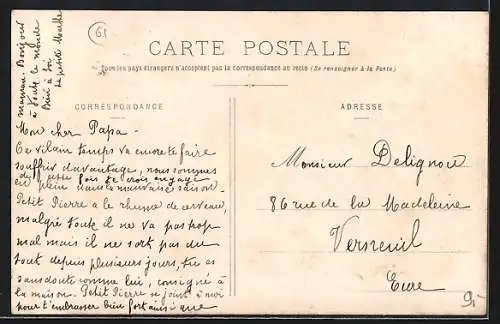 61
maman. Bonjour
à toute le monde
à toi
la petite
CARTE POSTALE
Tous les pays étrangers n'acceptent pas la correspondance au recto (Se renseigner à la Poste)
CORRESPONDANCE
ADRESSE
Mon cher Papa -
Ce vilain temps va encore te faire
souffrir davantage, nous sommes
cette fois je crois engagé
en plein dans la mauvaise saison.
Petit Pierre a le rhume de cerveau,
malgré tout il ne va pas trop
mal mais il ne sort pas du
tout depuis plusieurs jours, tu es
sans doute comme lui, consigné à
la maison. Petit Pierre se joint à moi
pour t'embrasser bien fort ainsi que
Monsieur Delignou
86 rue de la Madeleine
Verneuil
Eure